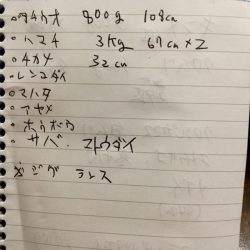 ・タチウオ 800g 108cm
・ハマチ 3kg 67cm×2
・チカメ 32cm
・レンコダイ
・マハタ
・アヤメ
・ホウボウ
・サバ マトウダイ
ジグ